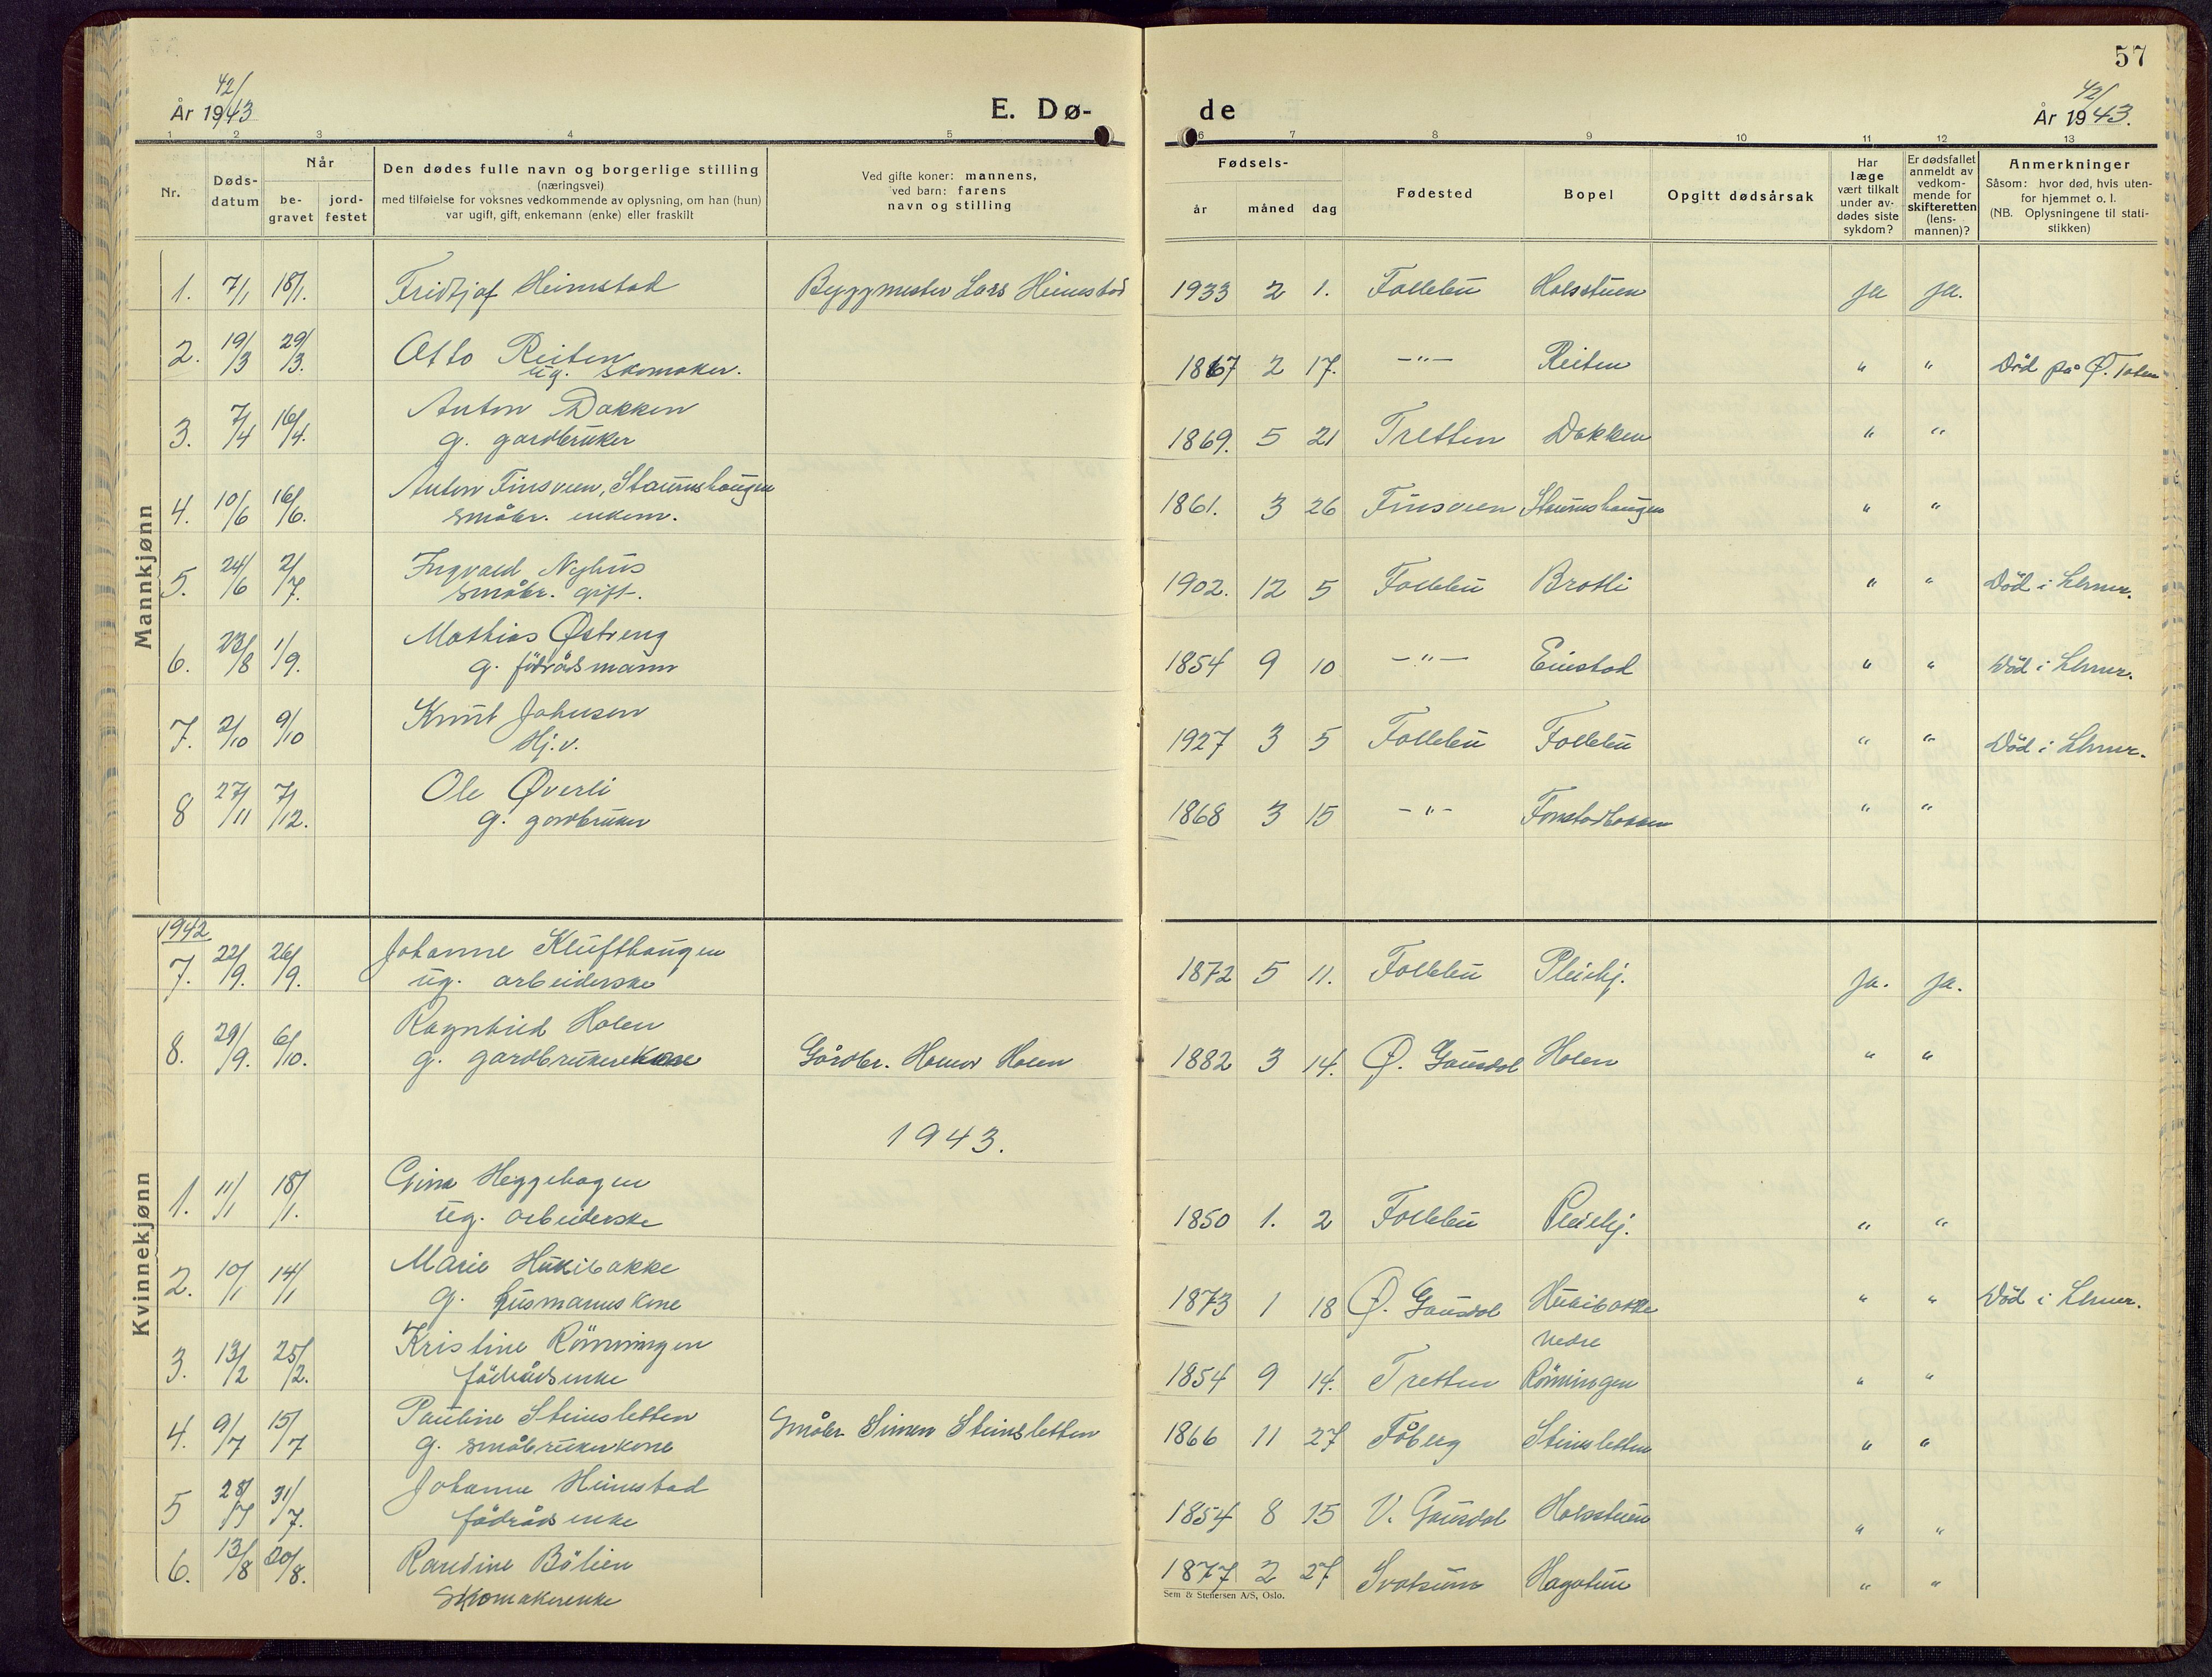 57
42/
År 1943
E. Dø-
de
42/
År 1943.
1 2 3 4 5 6 7 8 9 10 11 12 13
Nr.
Døds-
datum
Når
be-
gravet
jord-
festet
Den dødes fulle navn og borgerlige stilling
(næringsvei)
med tilføielse for voksnes vedkommende av oplysning, om han (hun)
var ugift, gift, enkemann (enke) eller fraskilt
Ved gifte koner: mannens,
ved barn: farens
navn og stilling
Fødsels-
år måned dag
Fødested
Bopel
Opgitt dødsårsak
Har
læge
vært tilkalt
under av-
dødes siste
sykdom?
Er dødsfallet
anmeldt av
vedkom-
mende for
skifteretten
(lens-
mannen)?
Anmerkninger
Såsom: hvor død, hvis uten-
for hjemmet o. l.
(NB. Oplysningene til stati-
stikken)
Mannkjønn
1. 7/1 18/1. Fridtjof Heimstad Byggmester Lars Heimstad 1933 2 1. Follebu Holsstuen ja ja.
2. 19/3 29/3. Otto Reiten
ug. skomaker. 1867 2 17. -"- Reiten " " Död på Ø. Toten
3. 7/4 16/4. Anton Dokken
g. gardbruker 1869. 5 21 Tretten Dokken " "
4. 10/6 16/6. Anton Finsveen, Staurushaugen
småbr. enkem. 1861. 3 26 Finsveen Staurushaugen " "
5. 24/6 2/7. Ingvald Nyhus
småbr. gift. 1902. 12 5 Follebu Brotli " " Död i Lhmr.
6. 23/8 1/9. Mathias Østreng
g. födrådsmann 1854 9 10 -"- Einstad " " Död i Lhmr.
7. 2/10 9/10 Knut Johnsen
Hj.v. 1927 3 5 Follebu Follebu " " Död i Lhmr.
8 27/11 7/12. Ole Øverli
g. gardbruker 1868 3 15 -"- Fonstadbakken " "
Kvinnekjønn
1942
7. 22/9. 26/9. Johanne Klufthaugen
ug. arbeiderske 1872 5 11. Follebu Pleiehj. ja. ja.
8. 29/9. 6/10. Ragnhild Holen
g. gardbrukerkone Gårdbr. Halvor Holen 1882 3 14. Ø. Gausdal Holen " "
1943.
1. 11/1 18/1. Gina Heggehagen
ug. arbeiderske 1850 1. 2 Follebu Pleiehj. " "
2. 10/1 14/1 Marie Hukibakke
g. husmannskone 1873 1 18 Ø. Gausdal Hukibakke " " Död i Lhmr.
nedre
3. 13/2 25/2. Kristine Rönningen
födrådsenke 1854 9 14. Tretten Rönningen " "
4. 9/7 15/7 Pauline Steinsletten
g. småbrukerkone Småbr Simen Steinsletten 1866 11 27 Fåberg Steinsletten " "
5 28/7 31/7. Johanne Heimstad
födrådsenke 1854 8 15 V. Gausdal Holsstuen " "
6. 13/8 20/8. Randine Bölien
Skomakerenke 1877 2 27 Svatsum Hagatun " "
Sem & Stenersen A/S, Oslo.